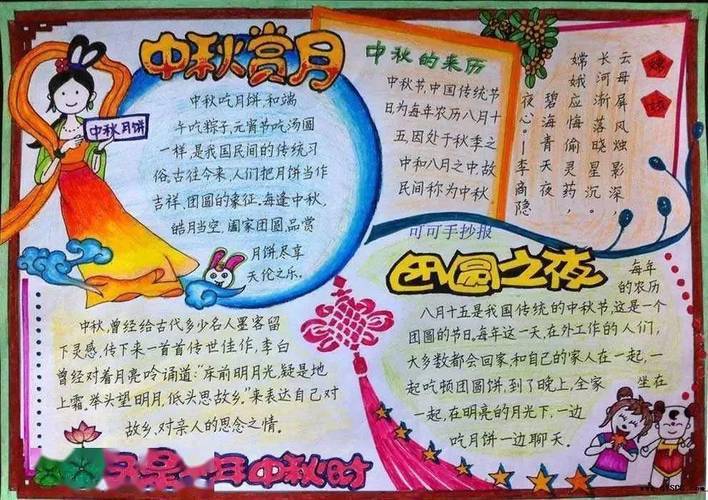 中秋赏月
中秋月饼
中秋吃月饼，和端
午吃粽子、元宵节吃汤圆
一样，是我国民间的传统习
俗。古往今来，人们把月饼当作
吉祥、团圆的象征。每逢中秋，
皓月当空，阖家团圆，品赏
月饼，尽享
天伦之乐。
中秋的来历
中秋节，中国传统节
日，为每年农历八月十
五，因处于秋季之
中和八月之中，故
民间称为中秋
嫦娥
云母屏风烛影深，
长河渐落晓星沉。
嫦娥应悔偷灵药，
碧海青天夜
夜心。—李商隐
可可手抄报
团圆之夜
每年
的农历
八月十五是我国传统的中秋节，这是一个
团圆的节日。每年这一天，在外工作的人们，
大多数都会回家和自己的家人在一起，一
起吃顿团圆饼，到了晚上，全家坐在
一起，在明亮的月光下，一边
吃月饼一边聊天。
中秋，曾经给古代多少名人墨客留
下灵感，传下来一首首传世佳作，李白
曾经对着月亮吟诵道：“床前明月光，疑是地
上霜。举头望明月，低头思故乡。”来表达自己对
故乡，对亲人的思念之情。
又是一年中秋时